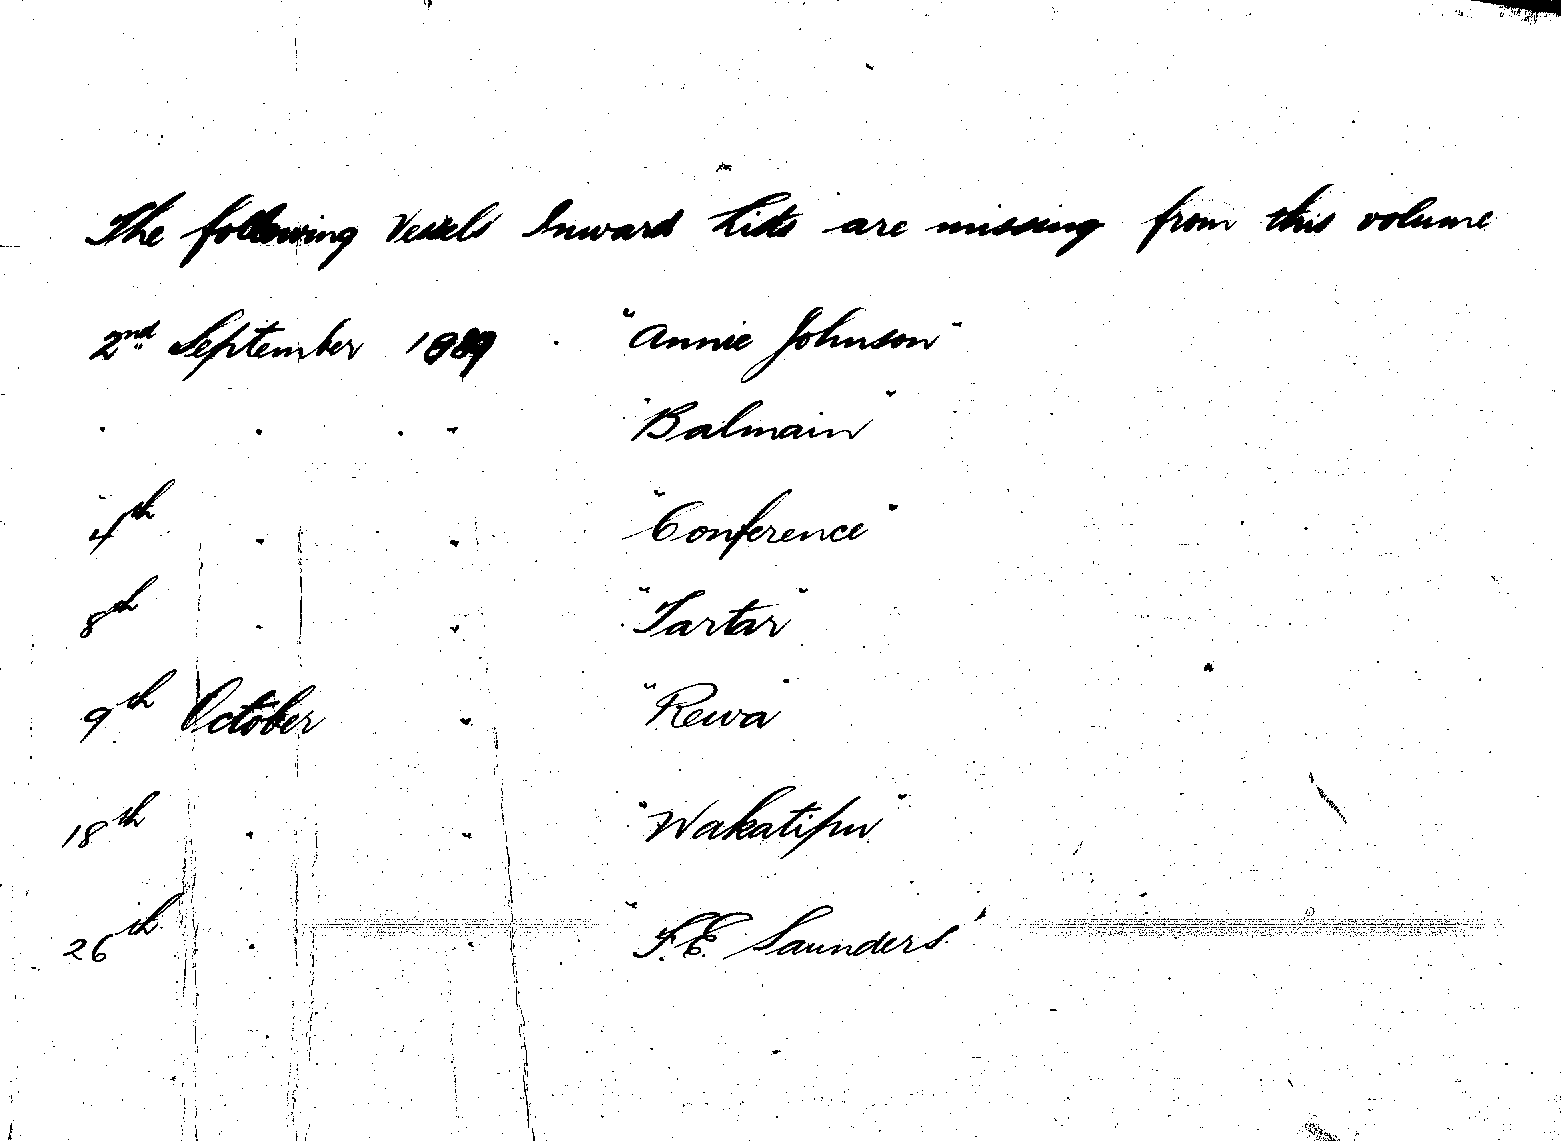 The following Vessels Inward Lists are missing from this volume
2nd September 1889 . "Annie Johnson"
" " " " "Balmain"
4th " " "Conference"
8th " " "Tartar"
9th October " "Rewa"
18th " " "Wakatipu"
26th " " "F.E. Saunders"